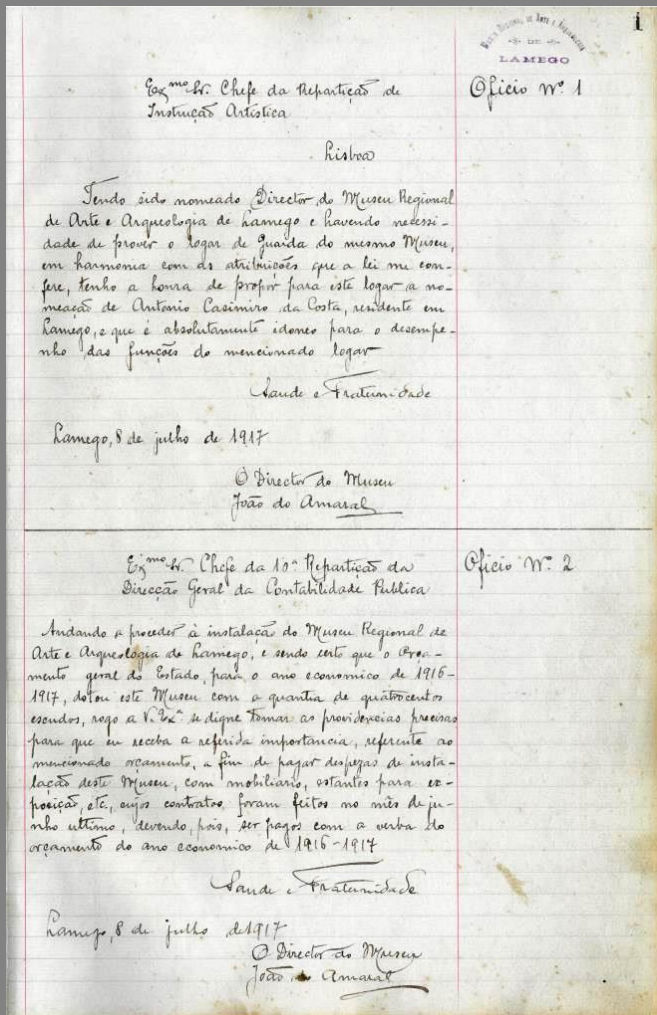 1
Museu Regional de Arte e Arqueologia
DE
LAMEGO
Exmo Sr. Chefe da Repartição de
Instrução Artistica
Oficio Nº 1
Lisboa
Tendo sido nomeado Director do Museu Regional
de Arte e Arqueologia de Lamego e havendo necessi-
dade de prover o logar de Guarda do mesmo Museu,
em harmonia com as atribuições que a lei me con-
fere, tenho a honra de propôr para este logar a no-
meação de Antonio Casimiro da Costa, residente em
Lamego, e que é absolutamente idoneo para o desempe-
nho das funções do mencionado logar
Saude e Fraternidade
Lamego, 8 de julho de 1917
O Director do Museu
João do Amaral
Exmo Sr. Chefe da 10ª Repartição da
Direcção Geral da Contabilidade Publica
Oficio Nº 2
Andando a proceder à instalação do Museu Regional de
Arte e Arqueologia de Lamego, e sendo certo que o Orça-
mento geral do Estado, para o ano economico de 1916-
1917, dotou este Museu com a quantia de quatrocentos
escudos, rogo a V. Exª se digne tomar as providencias precisas
para que eu receba a referida importancia, referente ao
mencionado orçamento, a fim de pagar despezas de insta-
lação deste Museu, com mobiliario, estantes para ex-
posição, etc., cujos contratos foram feitos no mês de ju-
nho ultimo, devendo, pois, ser pagos com a verba do
orçamento do ano economico de 1916-1917
Saude e Fraternidade
Lamego, 8 de julho de 1917
O Director do Museu
João do Amaral